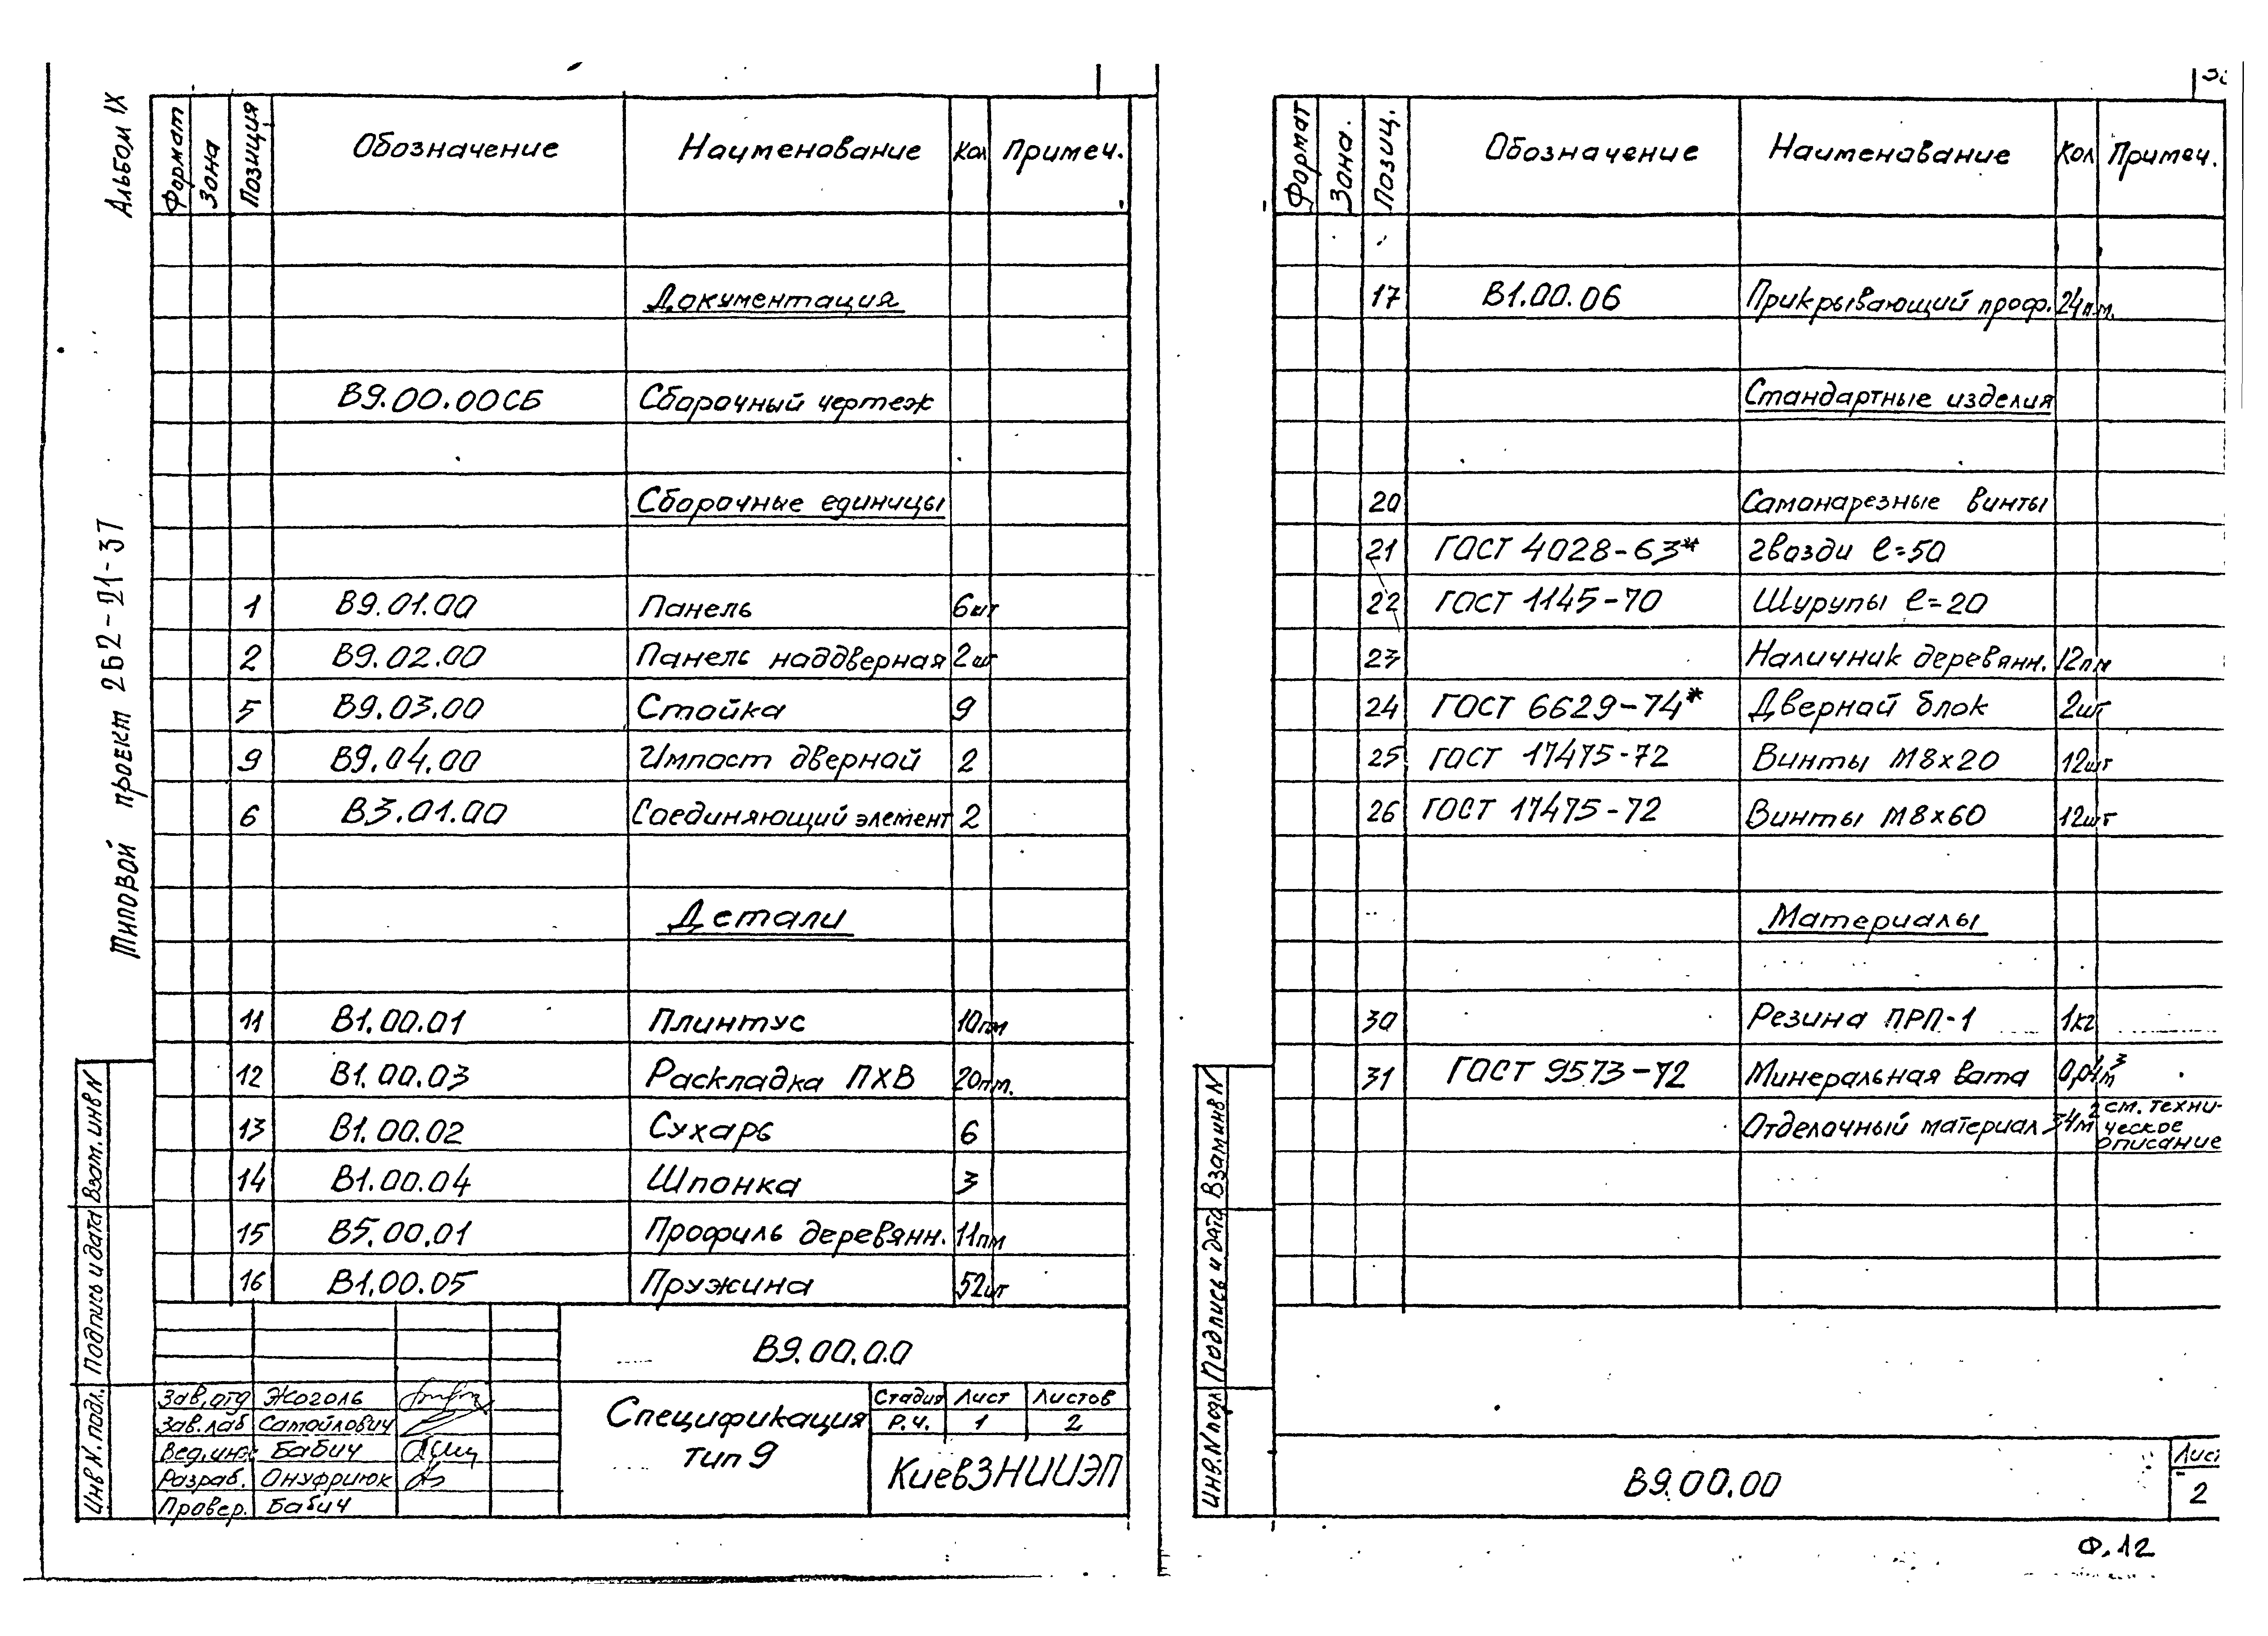 Альбом IX
Типовой проект 2Б2-21-37
Формат Зона Позиция Обозначение Наименование Кол Примеч.
Документация
В9.00.00СБ Сборочный чертеж
Сборочные единицы
1 В9.01.00 Панель 6шт
2 В9.02.00 Панель наддверная 2шт
5 В9.03.00 Стойка 9
9 В9.04.00 Импост дверной 2
6 В3.01.00 Соединяющий элемент 2
Детали
11 В1.00.01 Плинтус 10пм
12 В1.00.03 Раскладка ПХВ 20пм.
13 В1.00.02 Сухарь 6
14 В1.00.04 Шпонка 3
15 В5.00.01 Профиль деревянн. 11пм
16 В1.00.05 Пружина 52шт
Инв N. подл. Подпись и дата Взам. инв N
В9.00.00
Зав.отд Жоголь
Зав.лаб Самойлович
Вед.инж Бабич
Разраб. Онуфриюк
Провер. Бабич
Спецификация
тип 9
Стадия Лист Листов
Р.Ч. 1 2
КиевЗНИИЭП
Формат Зона. Позиц. Обозначение Наименование Кол Примеч.
17 В1.00.06 Прикрывающий проф. 24п.м.
Стандартные изделия
20 Самонарезные винты
21 ГОСТ 4028-63* Гвозди ℓ=50
22 ГОСТ 1145-70 Шурупы ℓ=20
23 Наличник деревянн. 12пм
24 ГОСТ 6629-74* Дверной блок 2шт
25 ГОСТ 17475-72 Винты М8х20 12шт
26 ГОСТ 17475-72 Винты М8х60 12шт
Материалы
30 Резина ПРП-1 1кг
31 ГОСТ 9573-72 Минеральная вата 0,04м³
Отделочный материал 34м² см. техни-
ческое
описание
Инв. N подл Подпись и дата Взам инв N
В9.00.00
Лист
2
Ф.12